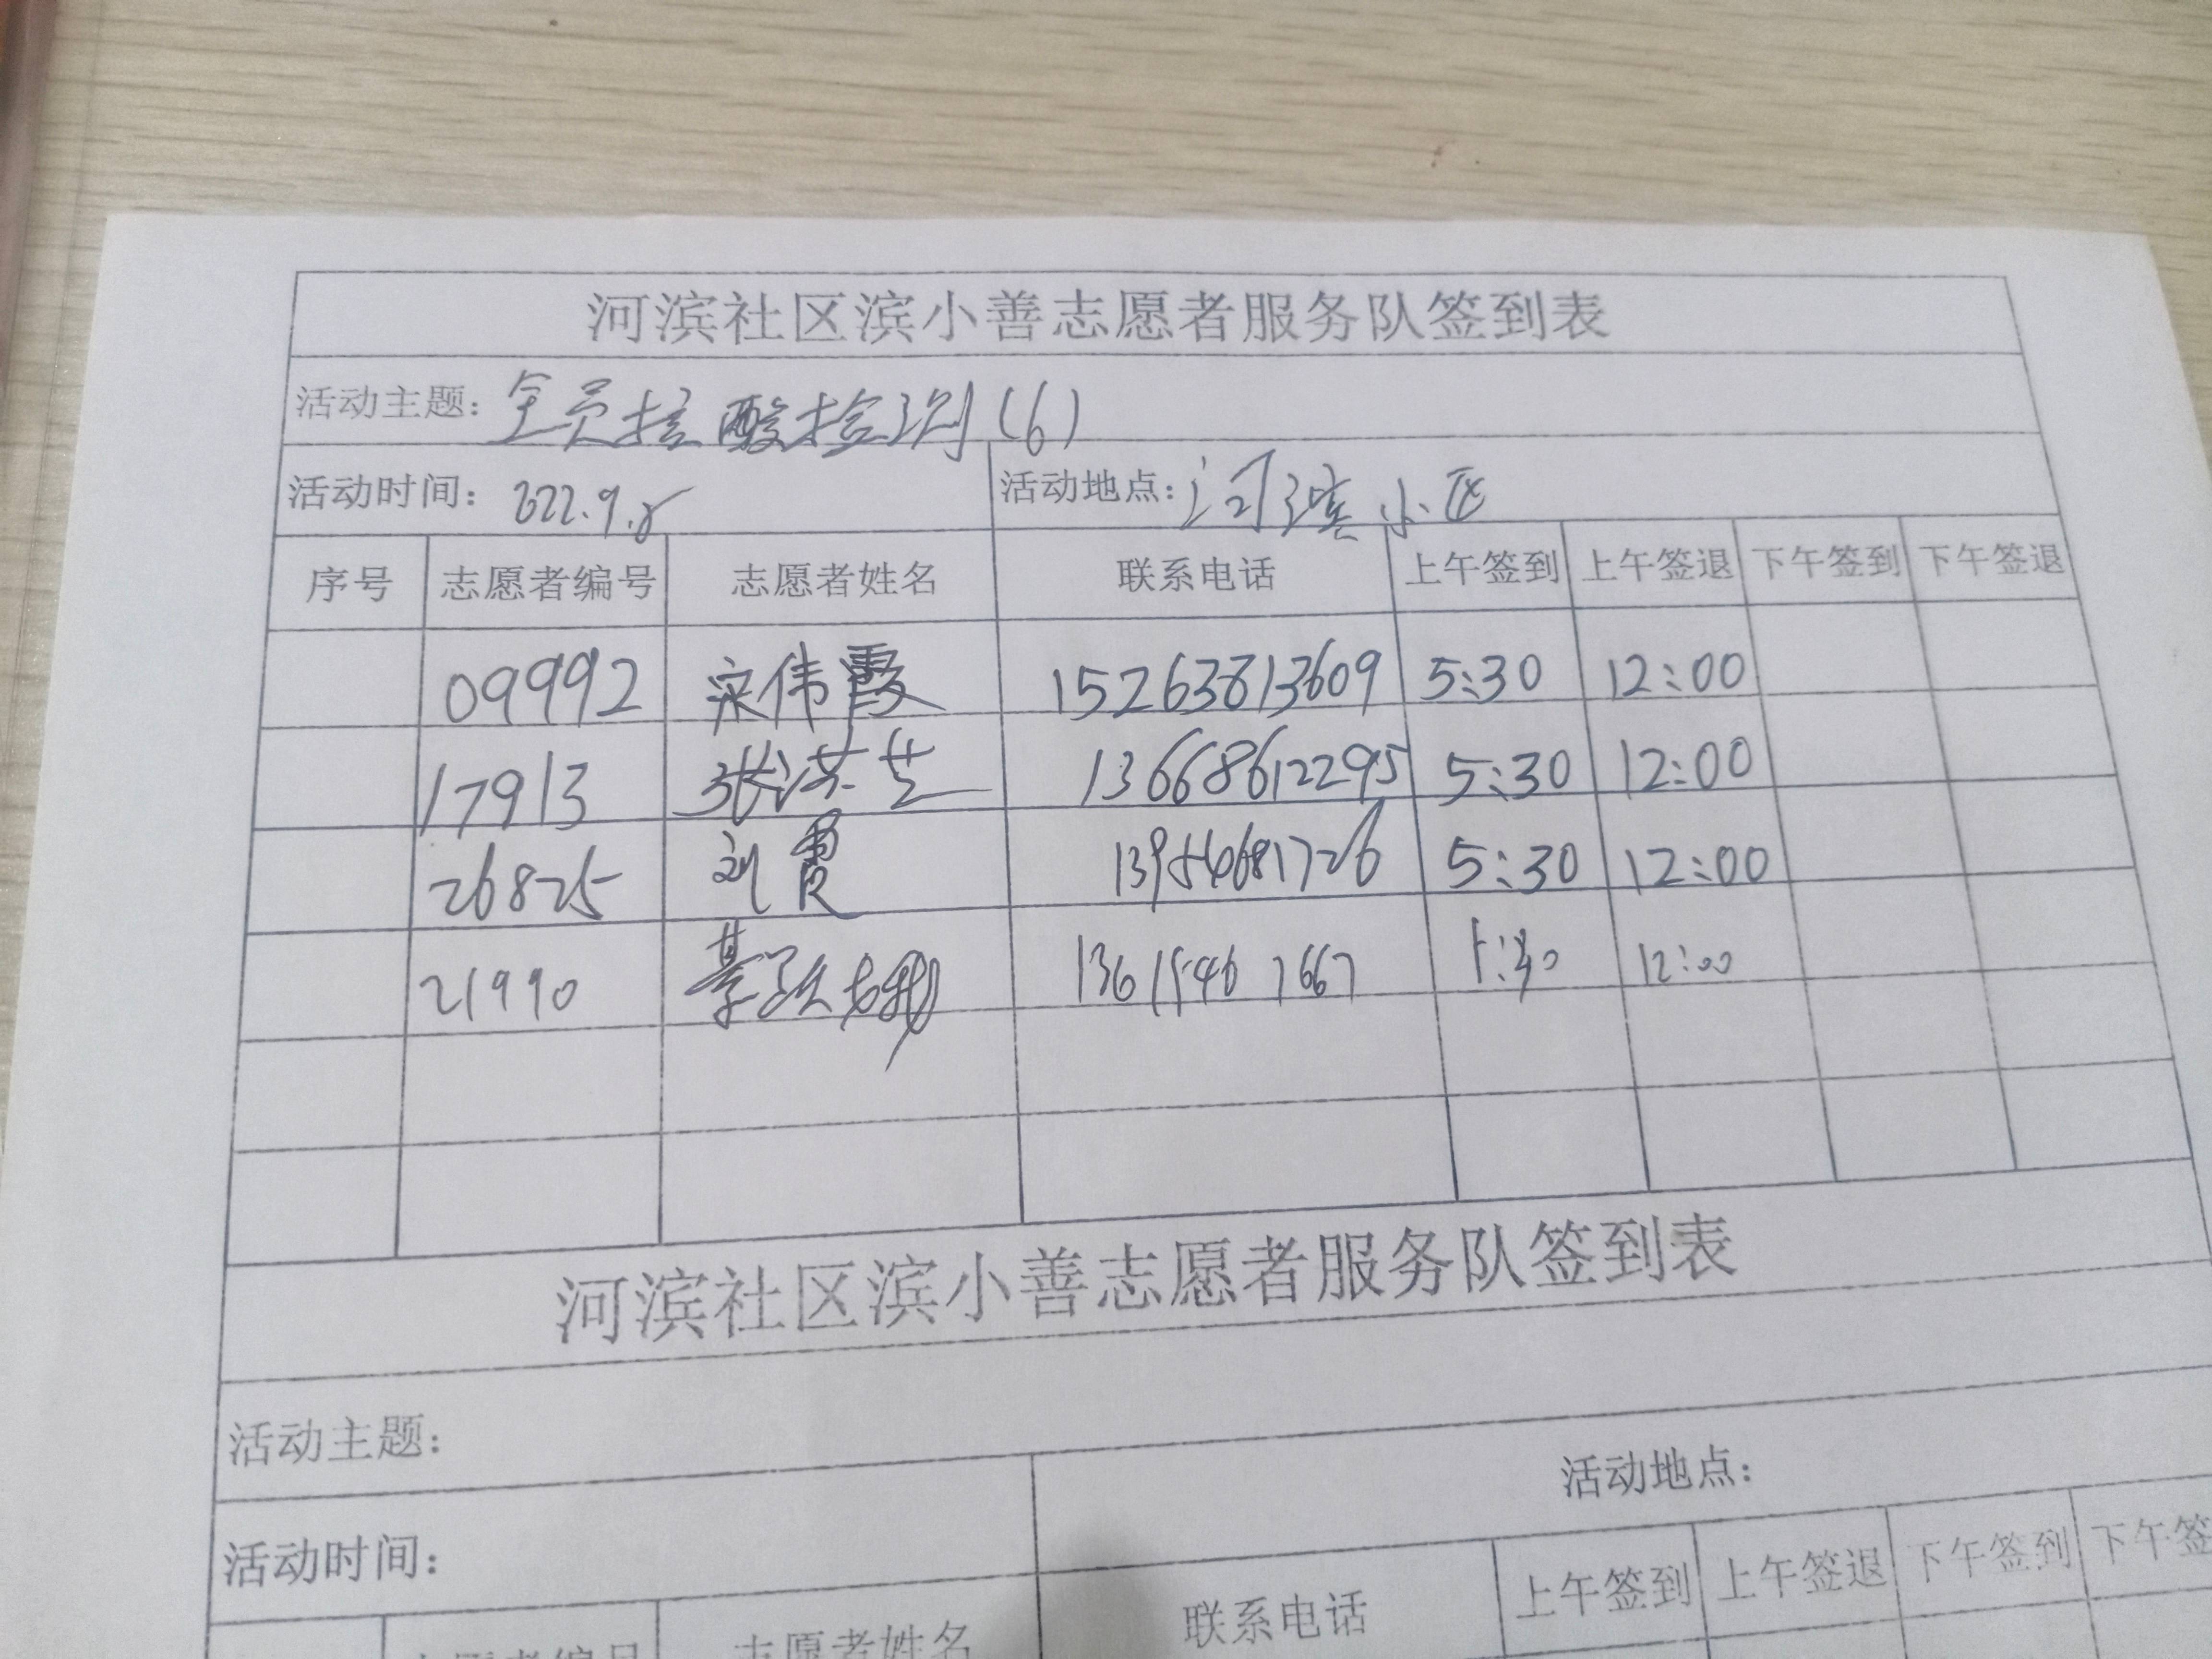 河滨社区滨小善志愿者服务队签到表
活动主题：全员核酸检测（6）
活动时间：2022.9.8 活动地点：河滨小区
序号 志愿者编号 志愿者姓名 联系电话 上午签到 上午签退 下午签到 下午签退
09992 宋伟霞 15263813609 5:30 12:00
17913 张洪芝 13668612295 5:30 12:00
26825 刘霞 13954681726 5:30 12:00
21990 13615461667 5:30 12:00
河滨社区滨小善志愿者服务队签到表
活动主题：
活动时间： 活动地点：
志愿者编号 志愿者姓名 联系电话 上午签到 上午签退 下午签到 下午签